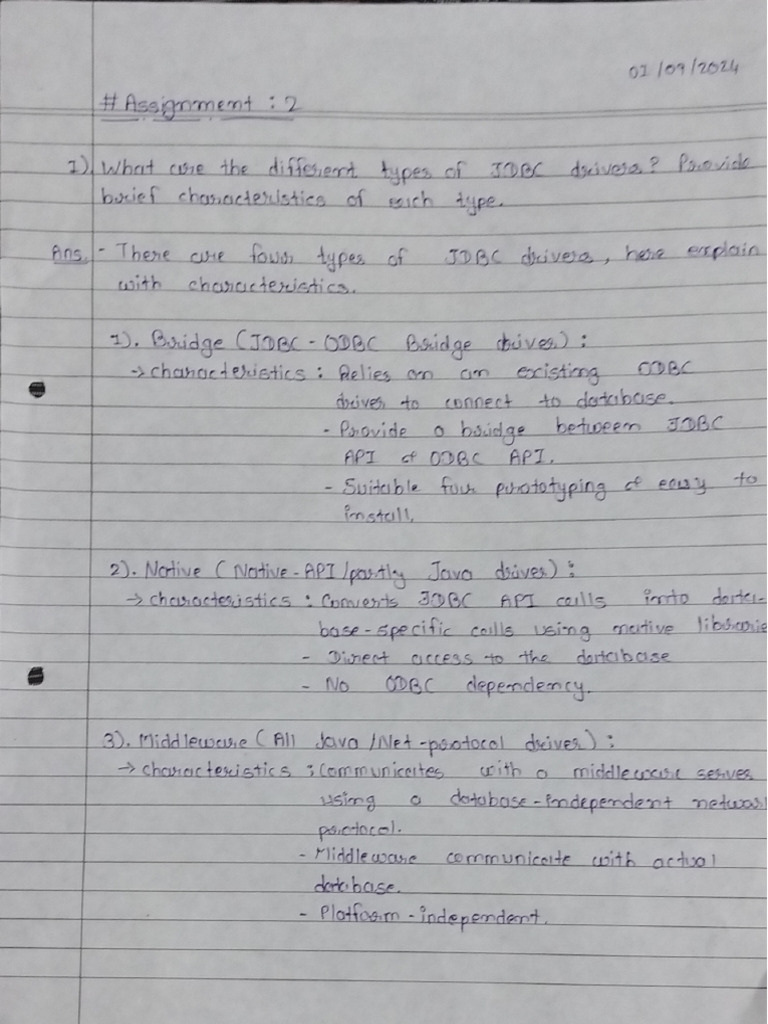 02/09/2024
# Assignment : 2
1) What are the different types of JDBC drivers? Provide
brief characteristics of each type.
Ans. - There are four types of JDBC drivers, here explain
with characteristics.
1). Bridge (JDBC - ODBC Bridge driver) :
→ characteristics : Relies on an existing ODBC
driver to connect to database.
- Provide a bridge between JDBC
API & ODBC API.
- Suitable for prototyping & easy to
install.
2). Native (Native-API/partly Java driver) :
→ characteristics : Converts JDBC API calls into data-
base-specific calls using native librarie
- Direct access to the database
- No ODBC dependency.
3). Middleware (All Java/Net-protocol driver) :
→ characteristics : Communicates with a middleware server
using a database-independent networ
protocol.
- Middleware communicate with actual
database.
- Platform-independent.